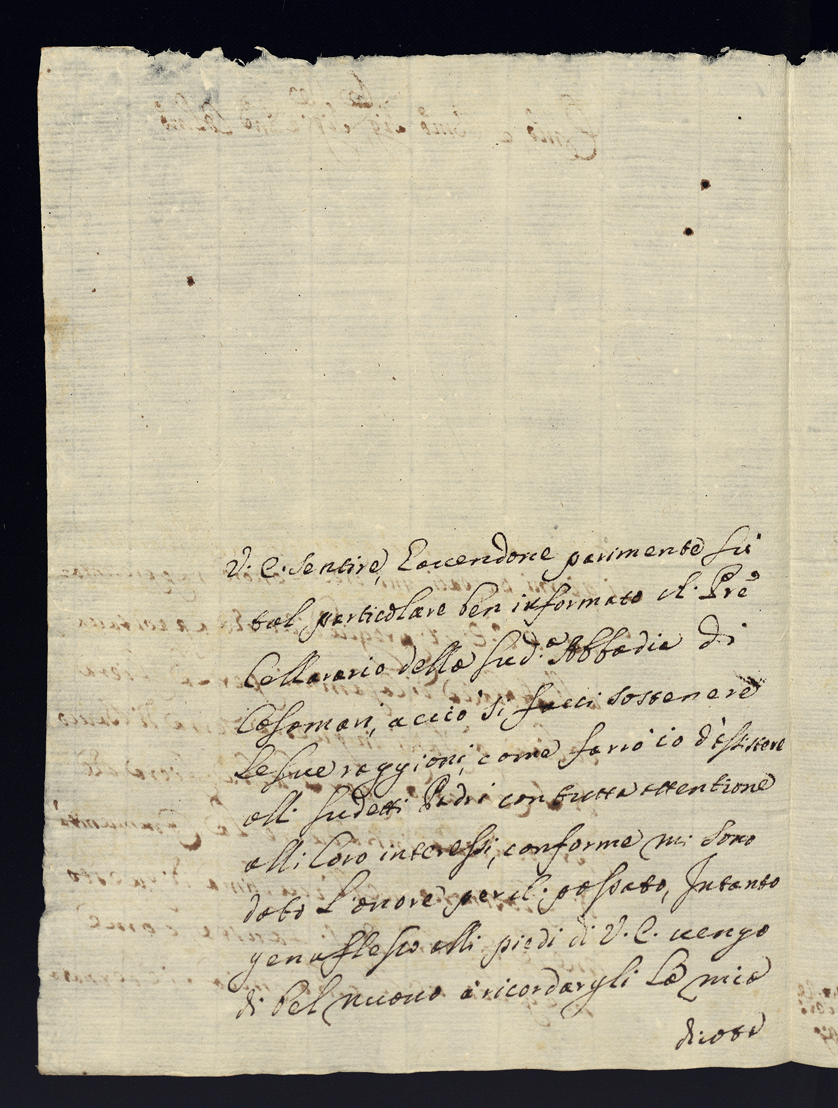 V. E. sentire, havendone parimente sù
tal particolare ben informato il Pre'
Cellarario della sud.a Abbadia di
Casamari, acciò si facci sostenere
le sue raggioni, come farò io d'assistere
alli sudetti Padri con tutta attentione
alli loro interessi, conforme mi sono
dato l'onore per il passato, Intanto
genuflesso alli piedi di V. E. vengo
di bel nuovo à ricordargli la mia
divota